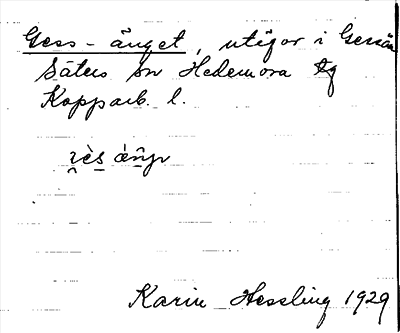 Gess-änget, utägor i Gessån
Säters sn Hedemora tg
Kopparb. l.
Karin Hessling 1929